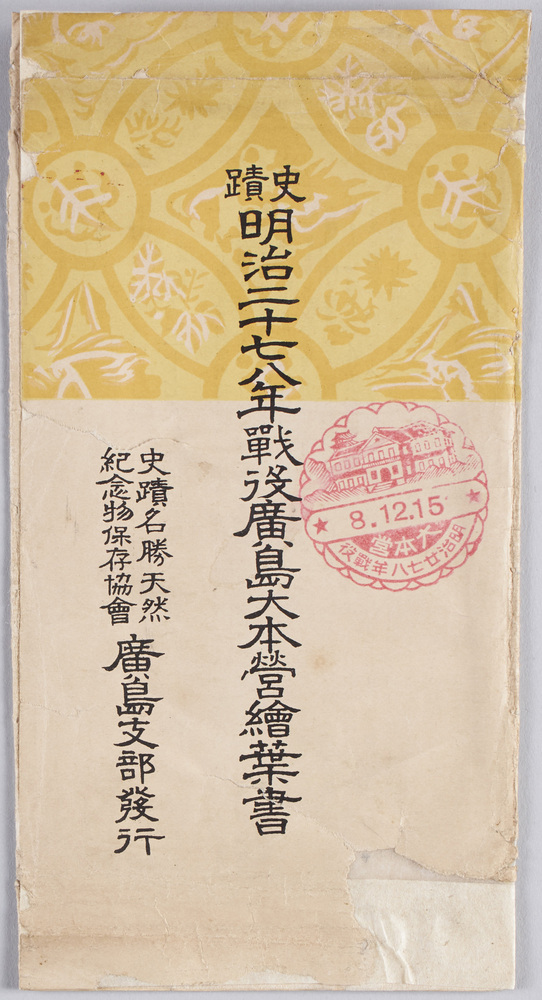 史蹟
明治二十七八年戰役廣島大本營繪葉書
史蹟名勝天然
紀念物保存協會
廣島支部發行
8.12.15
大本營
明治廿七八年戰役